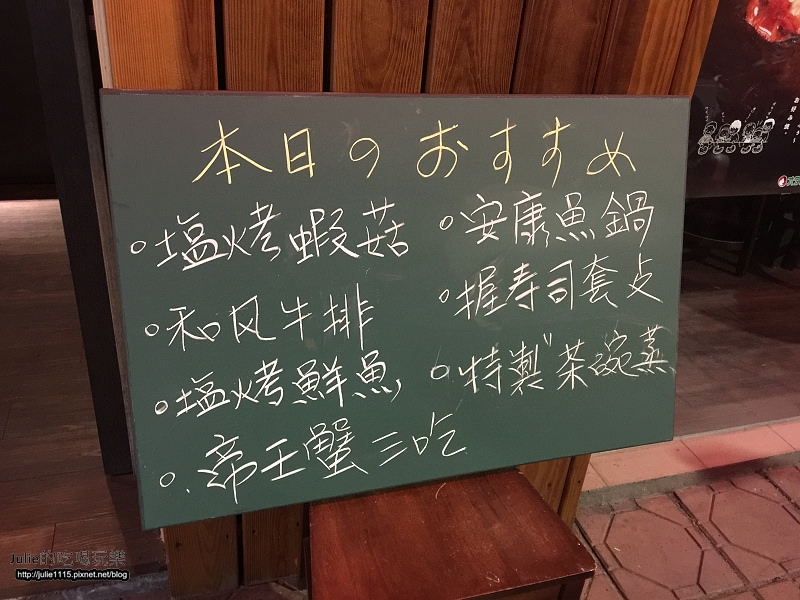 本日のおすすめ
。塩烤蝦菇
。和风牛排
。塩烤鮮魚
。帝王蟹三吃
。安康魚鍋
。握寿司套点
。特製茶碗蒸
Julie的吃喝玩樂
http://julie1115.pixnet.net/blog